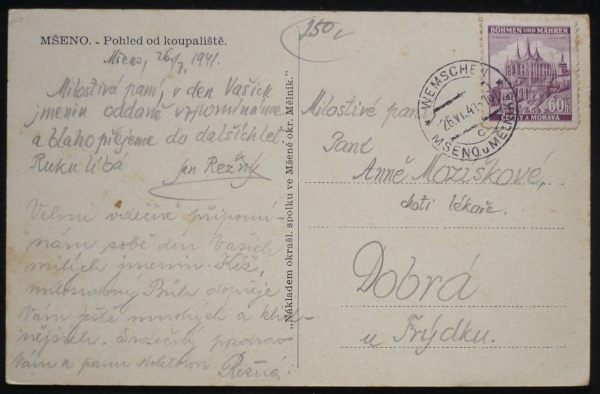 MŠENO. - Pohled od koupaliště.
Mšeno, 26/7. 1941.
Milostivá paní, v den Vašich
jmenin oddaně vzpomínáme
a blahopřejeme do dalších let.
Ruku líbá
Jan Režný
Velmi vděčně připomí-
nám sobě den Vašich
milých jmenin. Kéž,
milosrdný Bůh dopřeje
Vám ještě mnohých a klid-
nějších. Srdečný pozdrav
Vám a panu doktorovi
Režná.
„Nákladem okrašl. spolku ve Mšeně okr. Mělník."
250
BÖHMEN UND MÄHREN
60
A MORAVA
WEMSCHEN
26.VI.41
MŠENO u MĚLNÍKA
c
Milostivé paní
Paní
Anně Moziškové,
choti lékaře.
Dobrá
u Frýdku.